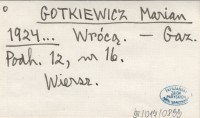 GOTKIEWICZ Marian
1924... Wrócą. — Gaz.
Podh. 12, nr 16.
Wiersz.